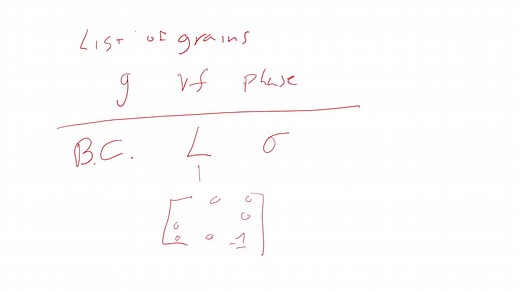 List of grains
g vf phase
B.C. L σ
0 0
0
0
0 0 -1